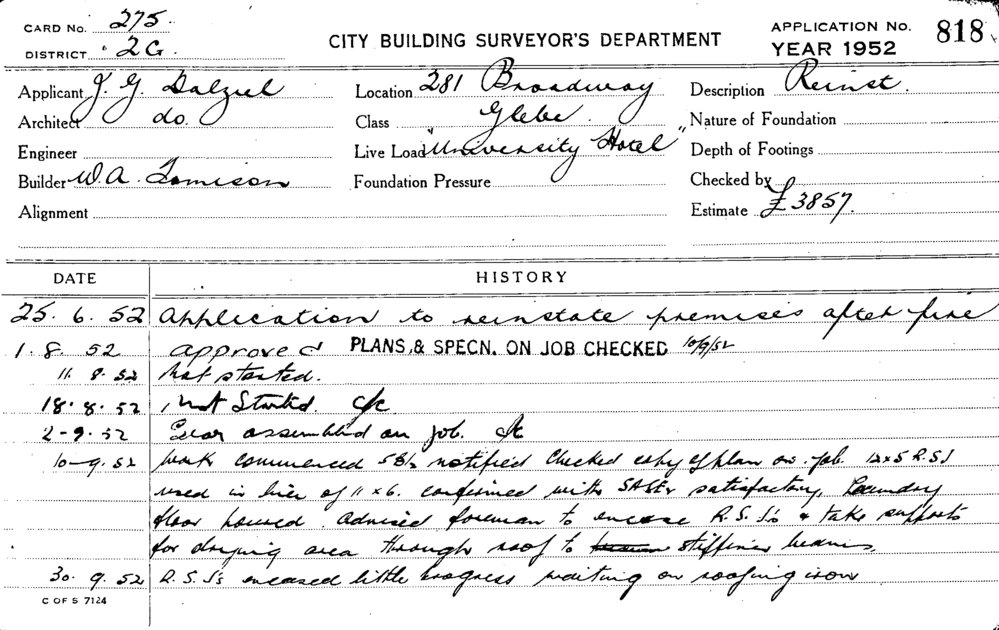 CARD No. 275.
DISTRICT 2G.
CITY BUILDING SURVEYOR'S DEPARTMENT
APPLICATION No. 818
YEAR 1952
Applicant J. G. Dalziel
Location 281 Broadway
Description Reinst.
Architect do.
Class Glebe.
Nature of Foundation
Engineer
Live Load "University Hotel"
Depth of Footings
Builder W. A. Jamison
Foundation Pressure
Checked by
Alignment
Estimate £3857.
DATE HISTORY
25. 6. 52 Application to reinstate premises after fire
1. 8. 52 approved PLANS & SPECN. ON JOB CHECKED 10/9/52
11. 8. 52 Not started.
18. 8. 52 Not Started.
2-9. 52 Gear assembled on job.
10-9. 52 Work commenced notified checked copy of plan on job. 12x5 R.S.J
used in lieu of 11 x 6. confirmed with satisfactory. Laundry
floor poured. Advised foreman to encase R.S.J's & take supports
for drying area through roof to stiffener beams.
30. 9. 52 R.S.J's encased little progress waiting on roofing iron
C OF S 7124